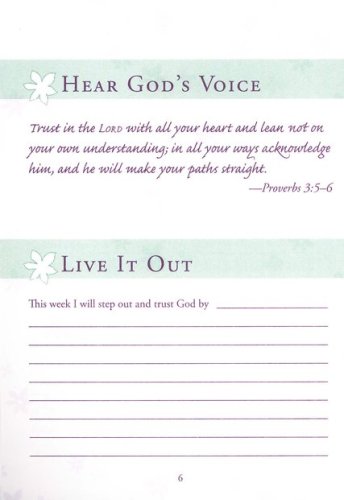 HEAR GOD'S VOICE
Trust in the LORD with all your heart and lean not on
your own understanding; in all your ways acknowledge
him, and he will make your paths straight.
—Proverbs 3:5–6
LIVE IT OUT
This week I will step out and trust God by
6